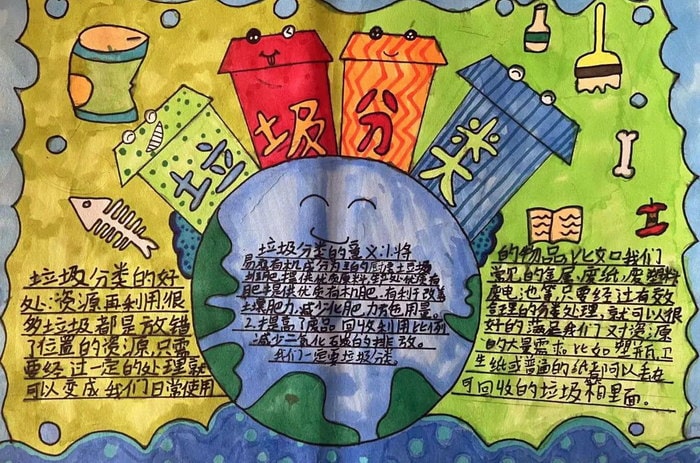 垃圾分类
垃圾分类的好
处:资源再利用很
多垃圾都是放错
了位置的资源,只需
要经过一定的处理就
可以变成我们日常使用
垃圾分类的意义:1.将
易腐有机成分为主的厨房垃圾
提供优质原料
肥提供优质有机肥,有利于改善
土壤肥力,减少化肥 用量。
2. 提高了废品回收利用比例
减少二氧化 的排放。
我们一定要垃圾分类
的物品,比如我们
常见的金属,废纸,废塑料
废电池等,只要经过有效
处理,就可以很
好的满足我们 对资源
的大量需求。比如塑料瓶,卫
生纸或普通的纸都可以
可回收的垃圾箱里面。